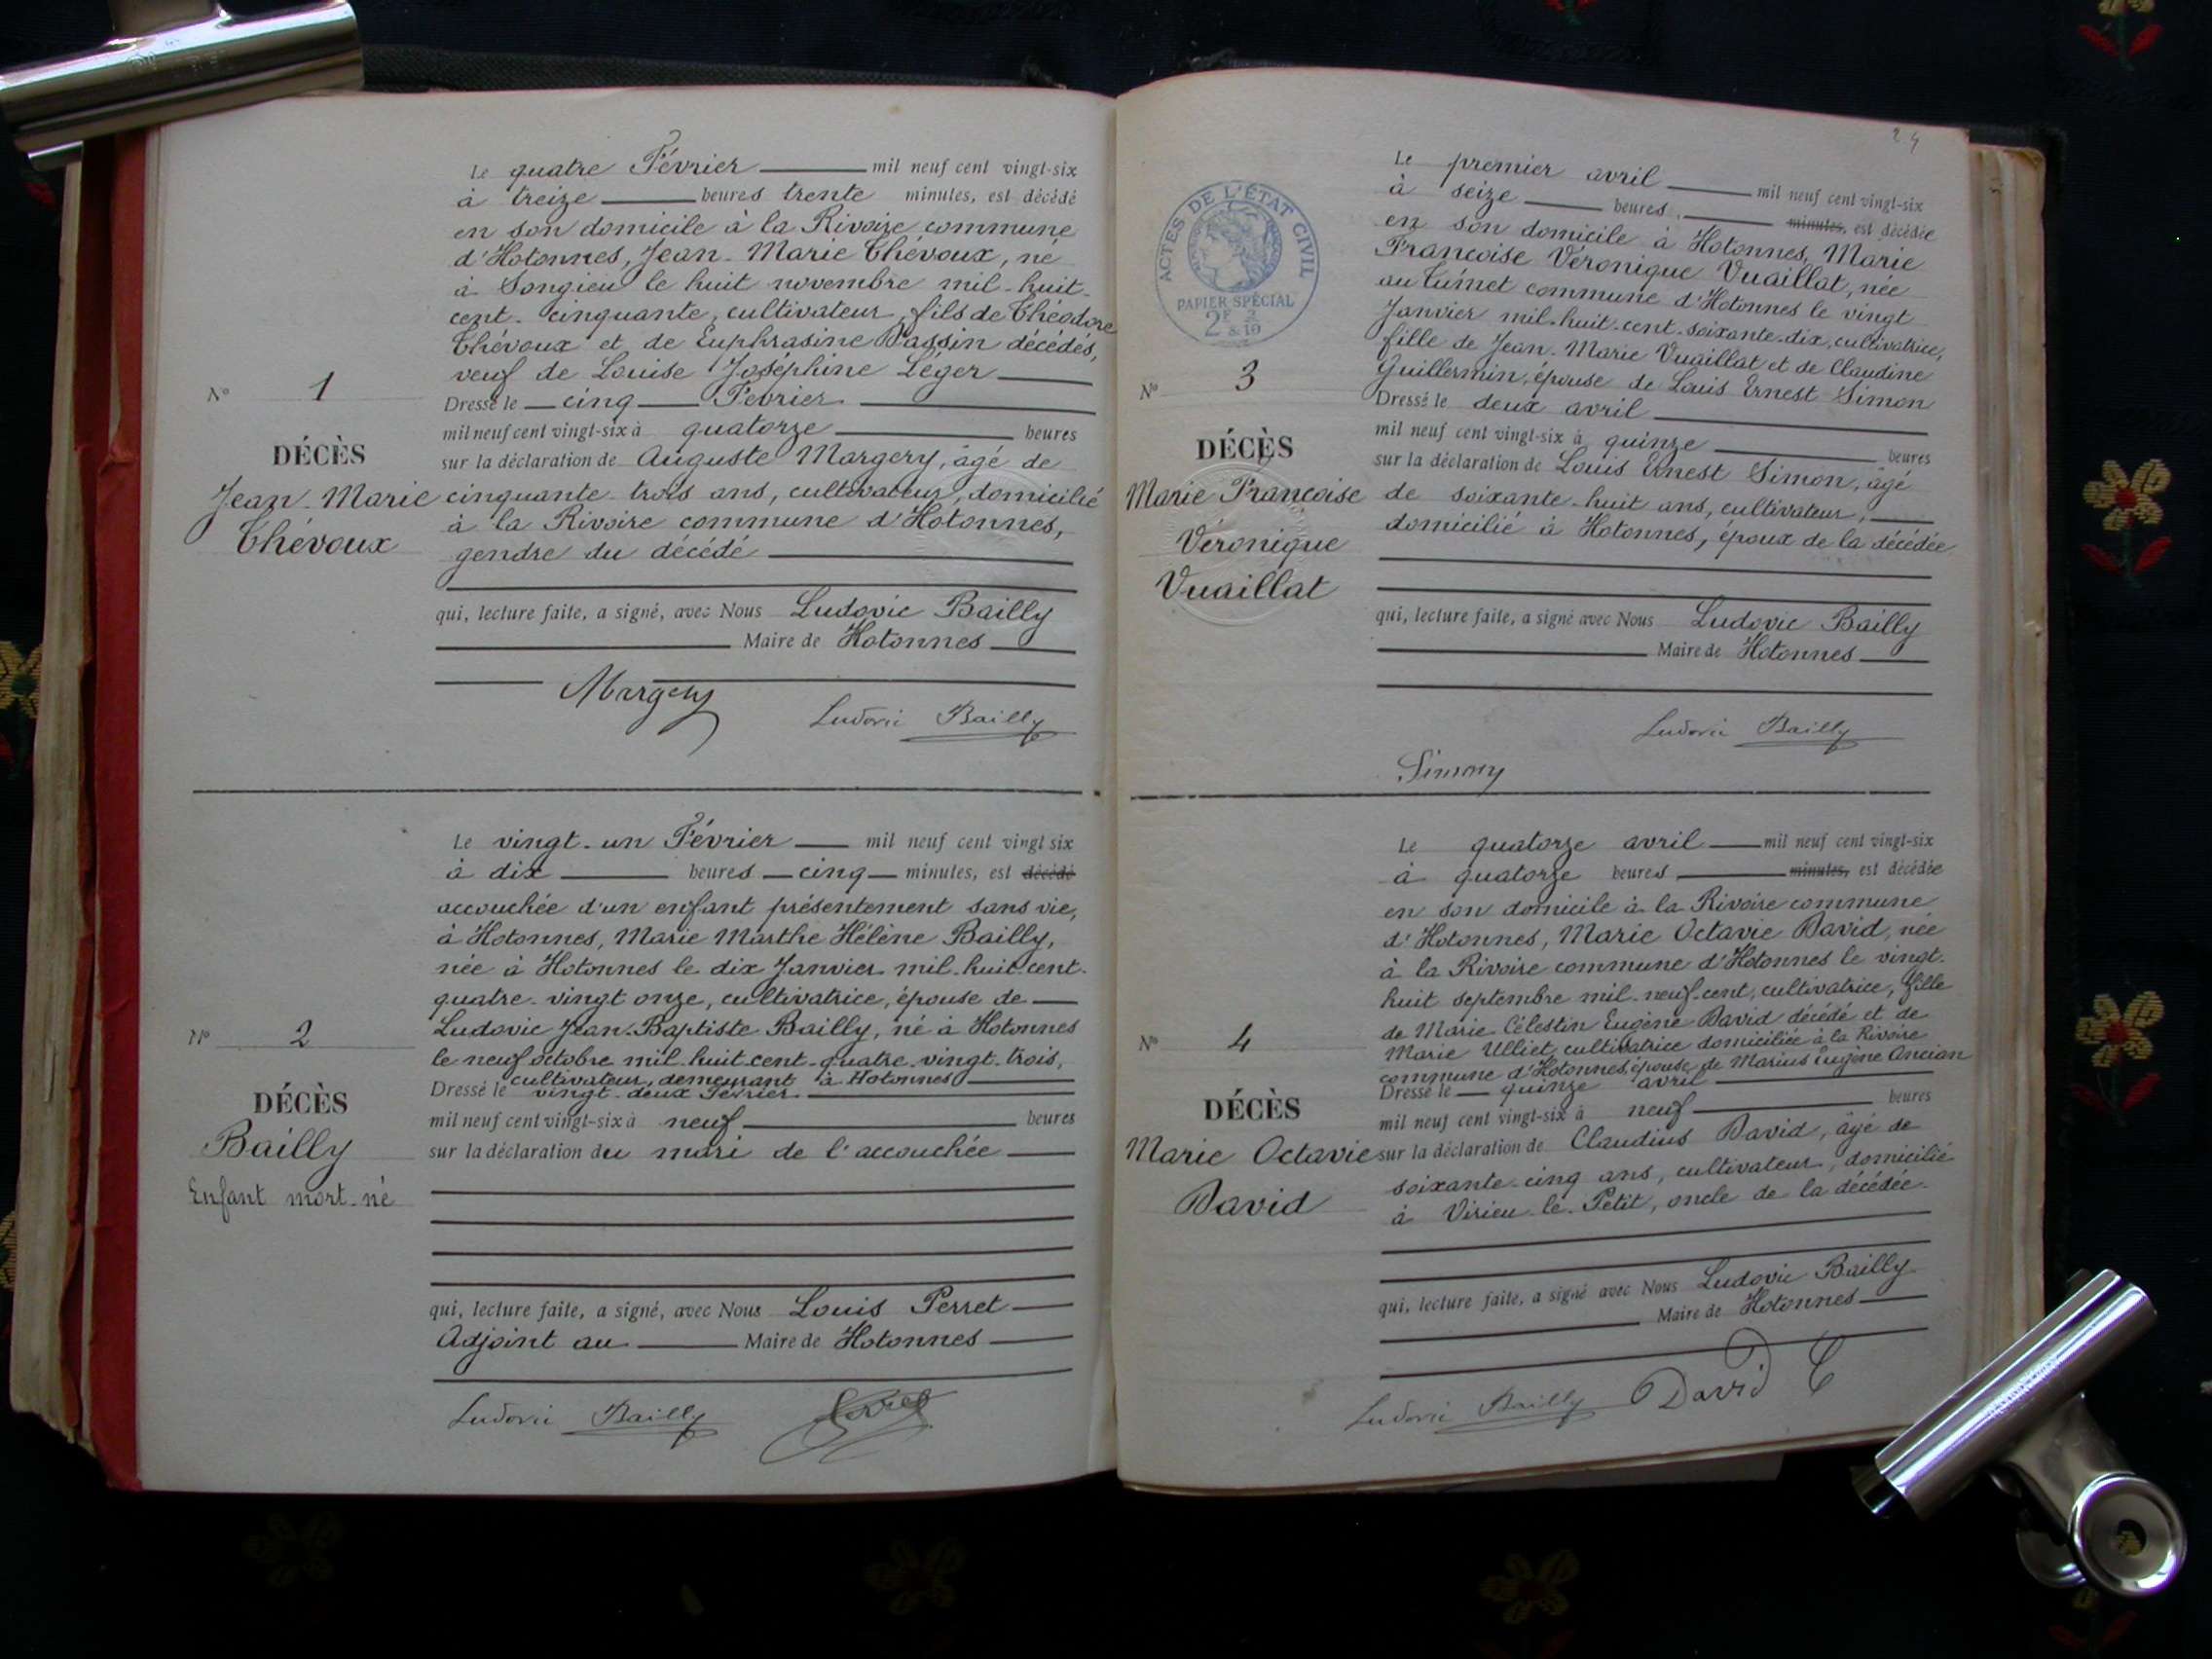 Le quatre Février mil neuf cent vingt-six
à treize heures trente minutes, est décédé
en son domicile à la Rivoire commune
d'Hotonnes, Jean-Marie Thévoux, né
à Songieu le huit novembre mil-huit-
cent-cinquante, cultivateur, fils de Théodore
Thévoux et de Euphrasine Passin décédés,
veuf de Louise Joséphine Léger
Dressé le cinq Février
mil neuf cent vingt-six à quatorze heures
sur la déclaration de Auguste Margery, âgé de
cinquante-trois ans, cultivateur, domicilié
à la Rivoire commune d'Hotonnes,
gendre du décédé
qui, lecture faite, a signé, avec Nous Ludovic Bailly
Maire de Hotonnes
Margery
Ludovic Bailly
N° 1
DÉCÈS
Jean-Marie
Thévoux
Le vingt-un Février mil neuf cent vingt six
à dix heures cinq minutes, est décédé
accouchée d'un enfant présentement sans vie,
à Hotonnes, Marie Marthe Hélène Bailly,
née à Hotonnes le dix Janvier mil-huit-cent-
quatre-vingt onze, cultivatrice, épouse de
Ludovic Jean-Baptiste Bailly, né à Hotonnes
le neuf octobre mil-huit-cent-quatre-vingt-trois,
cultivateur, demeurant à Hotonnes
Dressé le vingt-deux Février
mil neuf cent vingt-six à neuf heures
sur la déclaration du mari de l'accouchée
qui, lecture faite, a signé, avec Nous Louis Perret
Adjoint au Maire de Hotonnes
Ludovic Bailly
Perret
N° 2
DÉCÈS
Bailly
Enfant mort-né
24
ACTES DE L'ÉTAT CIVIL
PAPIER SPÉCIAL
Le premier avril mil neuf cent vingt-six
à seize heures minutes, est décédée
en son domicile à Hotonnes, Marie
Françoise Véronique Vuaillat, née
au commune d'Hotonnes le vingt
Janvier mil-huit-cent-soixante-dix, cultivatrice,
fille de Jean-Marie Vuaillat et de Claudine
Guillermin, épouse de Louis Ernest Simon
Dressé le deux avril
mil neuf cent vingt-six à quinze heures
sur la déclaration de Louis Ernest Simon, âgé
de soixante-huit ans, cultivateur,
domicilié à Hotonnes, époux de la décédée
qui, lecture faite, a signé avec Nous Ludovic Bailly
Maire de Hotonnes
Ludovic Bailly
Simon
N° 3
DÉCÈS
Marie Françoise
Véronique
Vuaillat
Le quatorze avril mil neuf cent vingt-six
à quatorze heures minutes, est décédée
en son domicile à la Rivoire commune
d'Hotonnes, Marie Octavie David, née
à la Rivoire commune d'Hotonnes le vingt-
huit septembre mil-neuf-cent, cultivatrice, fille
de Marie Célestin Eugène David décédé et de
Marie Ulliet, cultivatrice domiciliée à la Rivoire
commune d'Hotonnes, épouse de Marius Eugène Ancian
Dressé le quinze avril
mil neuf cent vingt-six à neuf heures
sur la déclaration de Claudius David, âgé de
soixante-cinq ans, cultivateur, domicilié
à Virieu-le-Petit, oncle de la décédée
qui, lecture faite, a signé avec Nous Ludovic Bailly
Maire de Hotonnes
Ludovic Bailly
David C
N° 4
DÉCÈS
Marie Octavie
David